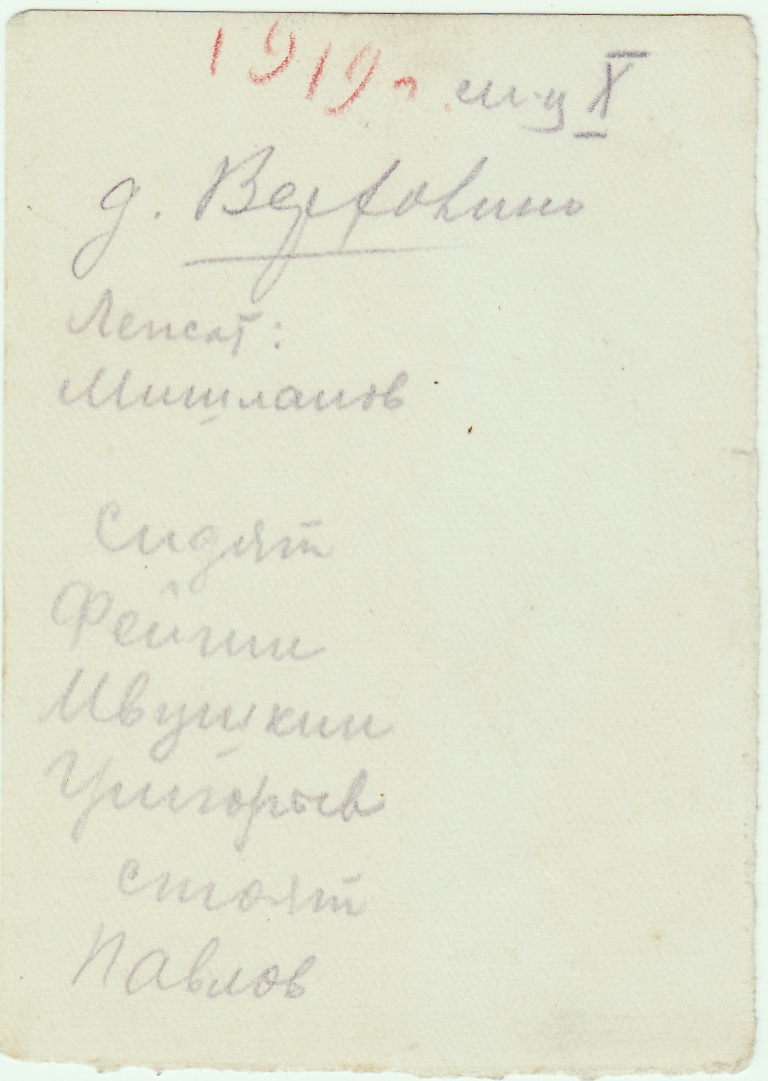 1919 г. м-ц X
д. Верховино
Лежат:
Мишланов
Сидят
Фейгин
Ивушкин
Григорьев
стоят
Павлов